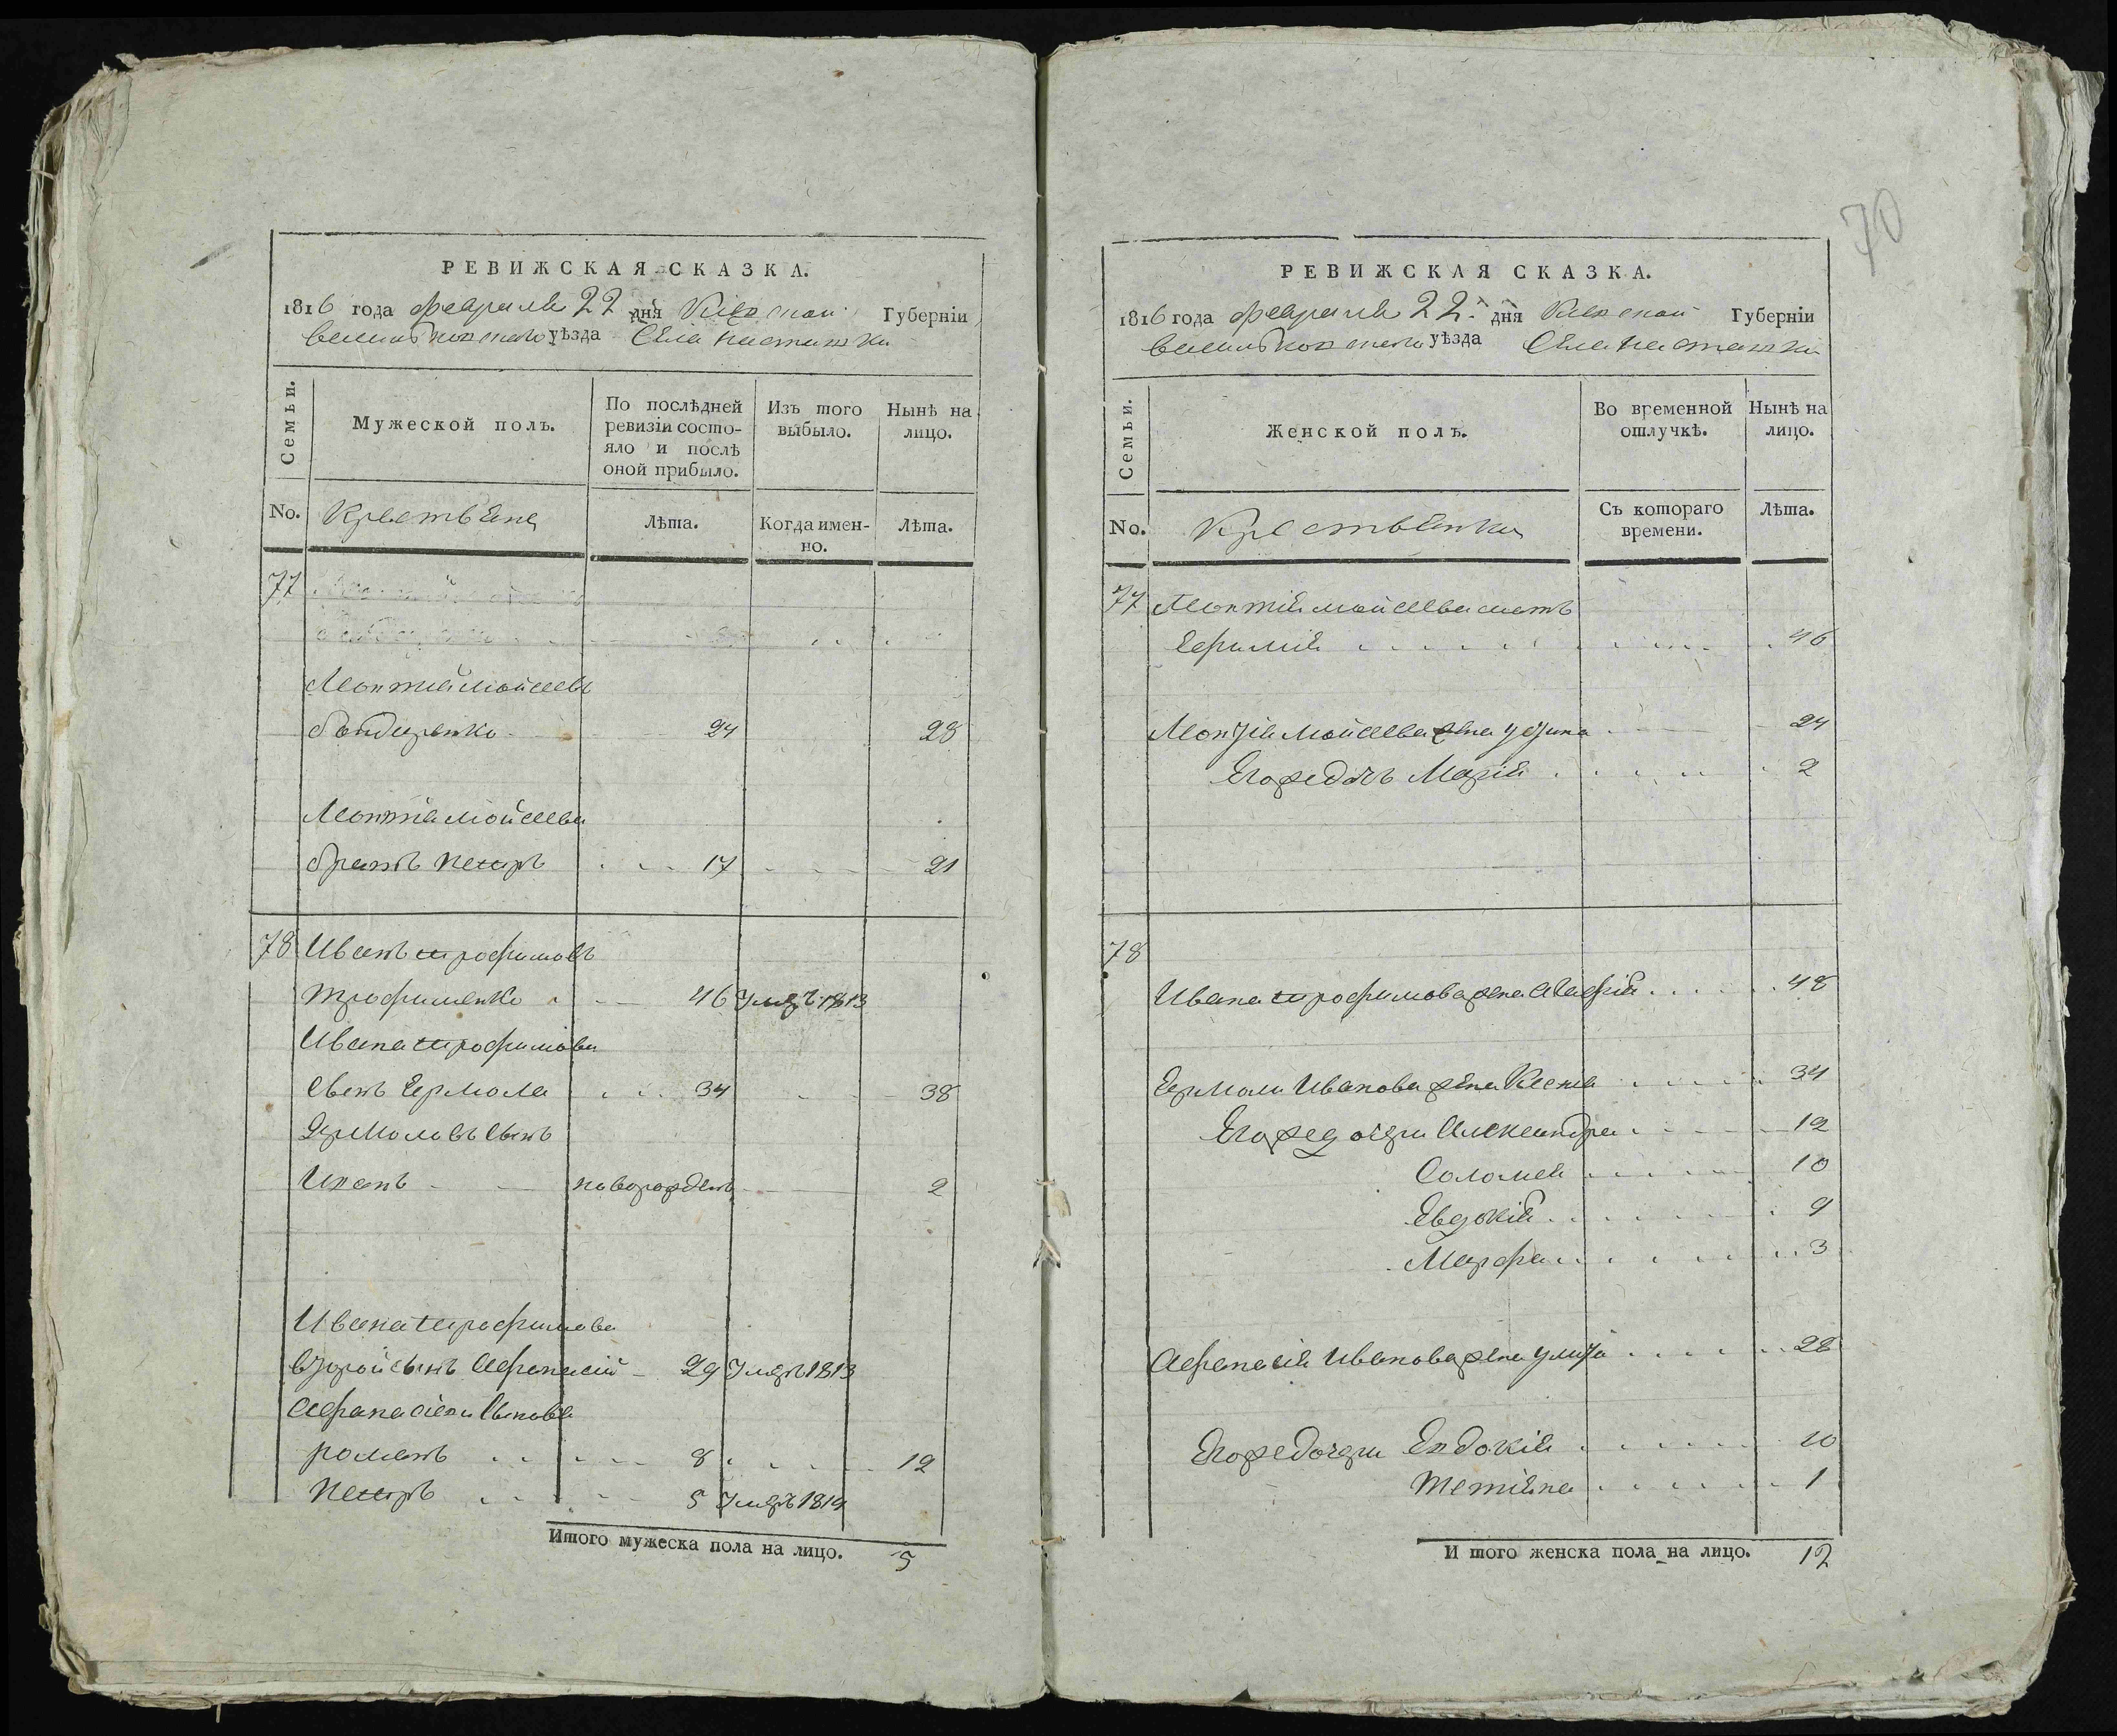 70
РЕВИЖСКАЯ СКАЗКА.
1816 года февраля 22 дня Киевской Губерніи
васильковского уѣзда Села насташки
Семьи.
Мужеской полъ.
По послѣдней ревизіи состо-
яло и послѣ оной прибыло.
Изъ того выбыло.
Нынѣ на лицо.
No.
Крестьяне
Лѣта.
Когда имен-
но.
Лѣта.
77
Леонтій Мойсеевъ
бондаренко 24 28
Леонтія Мойсеева
братъ петръ 17 21
78 Иванъ трофимовъ
трофименко 46 умръ 1813
Ивана трофимова
сынъ Ермола 34 38
Ермоловъ сынъ
Иванъ новорожденъ 2
Ивана трофимова
второй сынъ Афанасій 29 умръ 1813
Афанасіевы сыновья
романъ 8 12
петръ 5 умръ 1814
Итого мужеска пола на лицо. 5
РЕВИЖСКАЯ СКАЗКА.
1816 года февраля 22 дня Киевской Губерніи
васильковского уѣзда Села насташки
Семьи.
Женской полъ.
Во временной отлучкѣ.
Нынѣ на лицо.
No.
Крестьянки
Съ котораго времени.
Лѣта.
77 Леонтія мойсеева мать
Ефимія 46
Леонтія Мойсеева жена 24
Его же дочь Марія 2
78
Ивана трофимова жена 48
Ермолы Иванова жена Ксенія 34
Его же дочери Александра 12
Соломея 10
Евдокія 9
Марфа 3
Афанасія Иванова жена улита 28
Его же дочери Евдокія 10
Тетіяна 1
Итого женска пола на лицо. 12